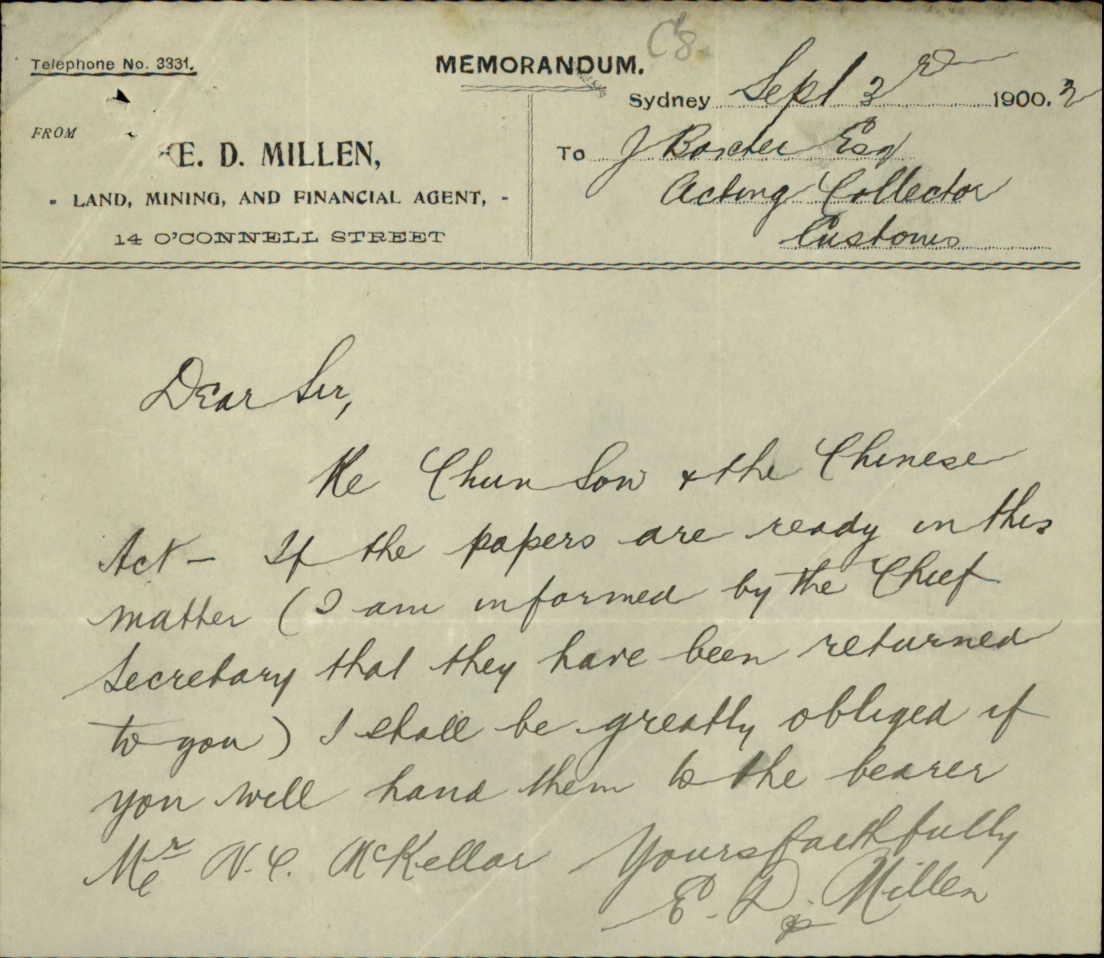 C8.
Telephone No. 3331.
MEMORANDUM.
Sydney Sept 3rd 1900.2
FROM
E. D. MILLEN,
To J Baxter Esq
- LAND, MINING, AND FINANCIAL AGENT, -
Acting Collector
14 O'CONNELL STREET
Customs
Dear Sir,
Re Chun Son & the Chinese
Act - If the papers are ready in this
matter (I am informed by the Chief
Secretary that they have been returned
to you) I shall be greatly obliged if
you will hand them to the bearer
Mr N. C. McKellar Yours faithfully
E. D. Millen